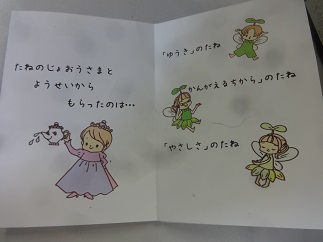 たねのじょおうさまと
ようせいから
もらったのは…
「ゆうき」のたね
「かんがえるちから」のたね
「やさしさ」のたね